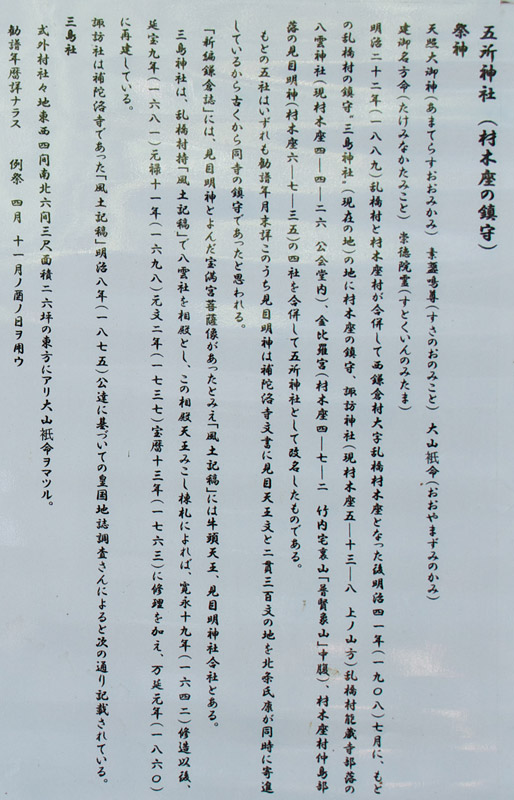 五所神社 (材木座の鎮守)
祭神
天照大御神(あまてらすおおみかみ) 素盞鳴尊(すさのおのみこと) 大山祇命(おおやまずみのかみ)
建御名方命(たけみなかたみこと) 崇徳院霊(すとくいんのみたま)
明治二十二年(一八八九)乱橋村と材木座村が合併して西鎌倉村大字乱橋材木座となった後明治四一年(一九〇八)七月に、もと
の乱橋村の鎮守"三島神社"(現在の地)の地に材木座の鎮守、諏訪神社(現材木座五―十三―八 上ノ山方)乱橋村能蔵寺部落の
八雲神社(現材木座四―四―二六 公会堂内)、金比羅宮(材木座四―七―二 竹内宅裏山「普賢象山」中腹)、材木座村仲島部
落の見目明神(材木座六―七―三五)の四社を合併して五所神社として改名したものである。
もとの五社はいずれも勧請年月未詳このうち見目明神は補陀洛寺文書に見目天王文と二貫三百文の地を北条氏康が同時に寄進
しているから古くから同寺の鎮守であったと思われる。
「新編鎌倉誌」には、見目明神とよんだ宝満宮菩薩像があったとみえ「風土記稿」には牛頭天王、見目明神社合社とある。
三島神社は、乱橋村持「風土記稿」で八雲社を相殿とし、この相殿天王みこし棟札によれば、寛永十九年(一六四二)修造以後、
延宝九年(一六八一)元禄十一年(一六九八)元文二年(一七三七)宝暦十三年(一七六三)に修理を加え、万延元年(一八六〇)
に再建している。
諏訪社は補陀洛寺であった「風土記稿」明治八年(一八七五)公達に基づいての皇国地誌調査さんによると次の通り記載されている。
三島社
式外村社々地東西四間南北六間三尺面積二六坪の東方にアリ大山祇命ヲマツル。
勧請年暦詳ナラス 例祭 四月 十一月ノ酉ノ日ヲ用ウ